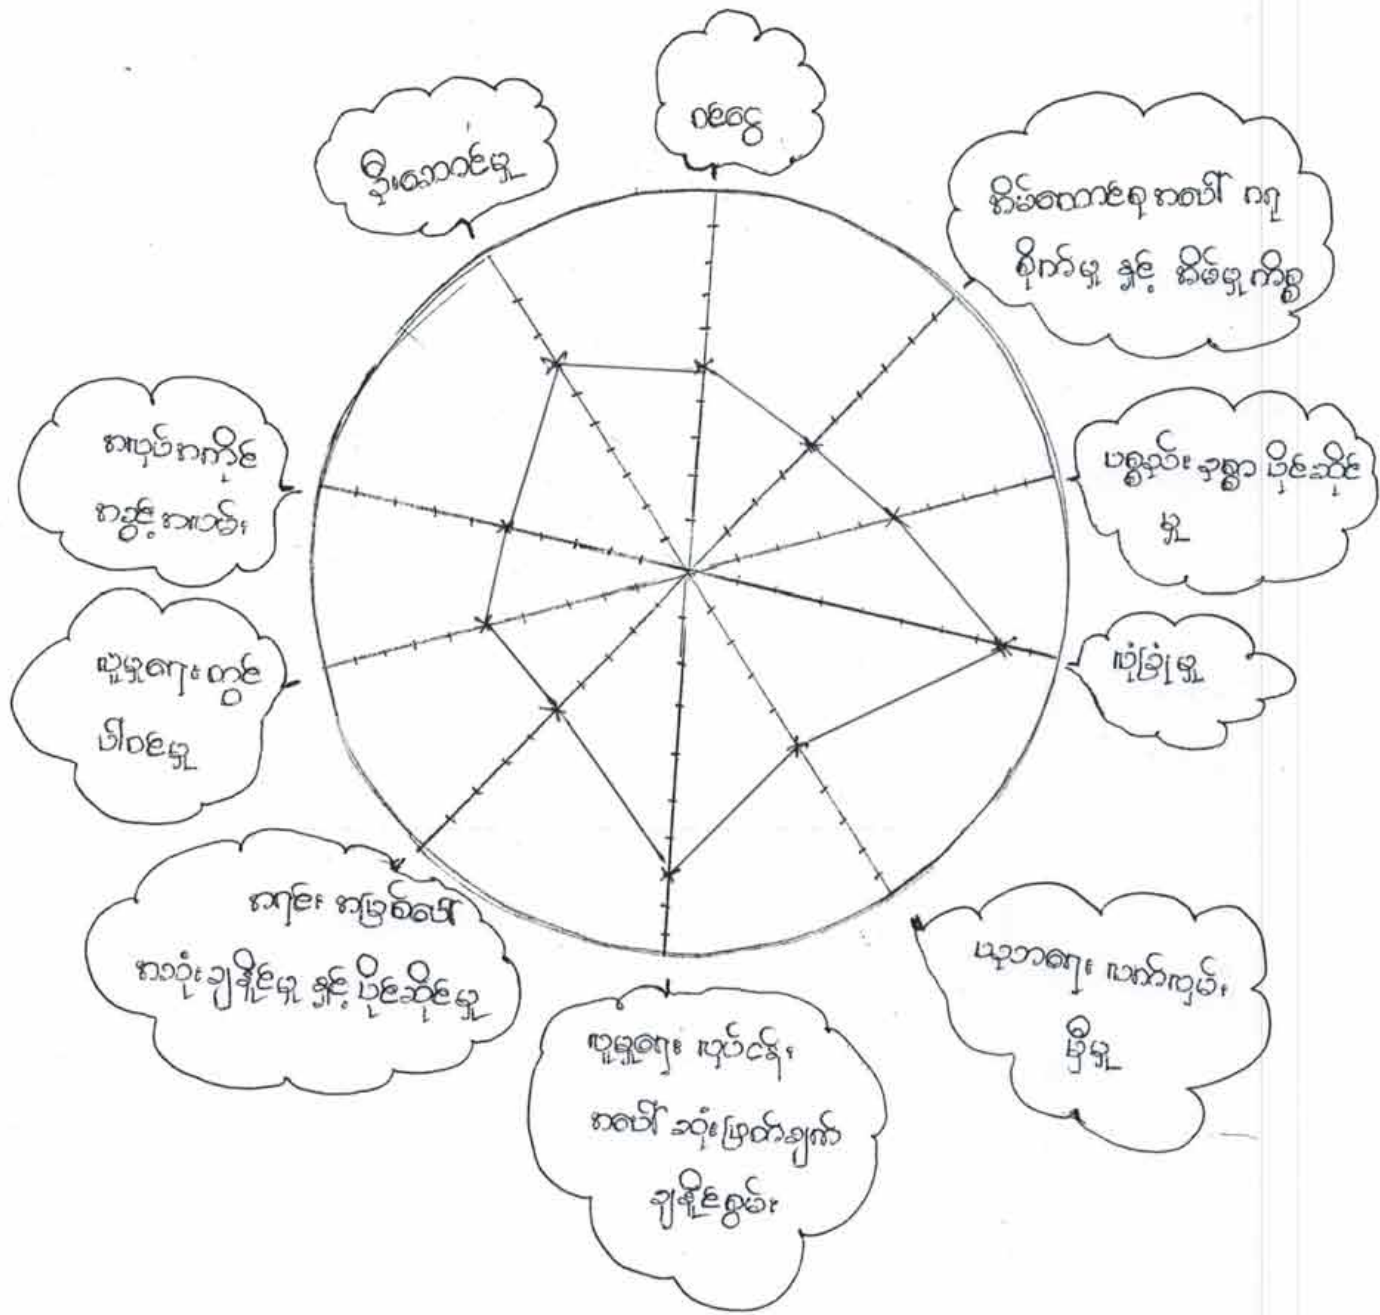 ဝင်ငွေ
အိမ်ထောင်စုအပေါ် ဂရု
စိုက်မှု နှင့် အိမ်မှုကိစ္စ
ပစ္စည်း ဥစ္စာ ပိုင်ဆိုင်
မှု
လုံခြုံမှု
ပညာရေး လက်လှမ်း
မှီမှု
လူမှုရေး လုပ်ငန်း
အပေါ် ဆုံးဖြတ်ချက်
ချနိုင်စွမ်း
အရင်း အမြစ်ပေါ်
အသုံးချနိုင်မှု နှင့် ပိုင်ဆိုင်မှု
လူမှုရေး တွင်
ပါဝင်မှု
အလုပ်အကိုင်
အခွင့်အလမ်း
ဦးဆောင်မှု